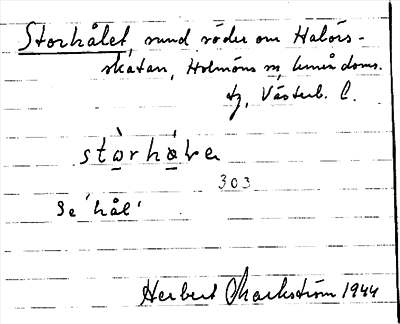 Storhålet, sund söder om Halörs-
skatan, Holmöns sn, Umeå doms.
tg, Västerb. l.
stòrhá̤lra
303
Se 'hål'
Herbert Markström 1944